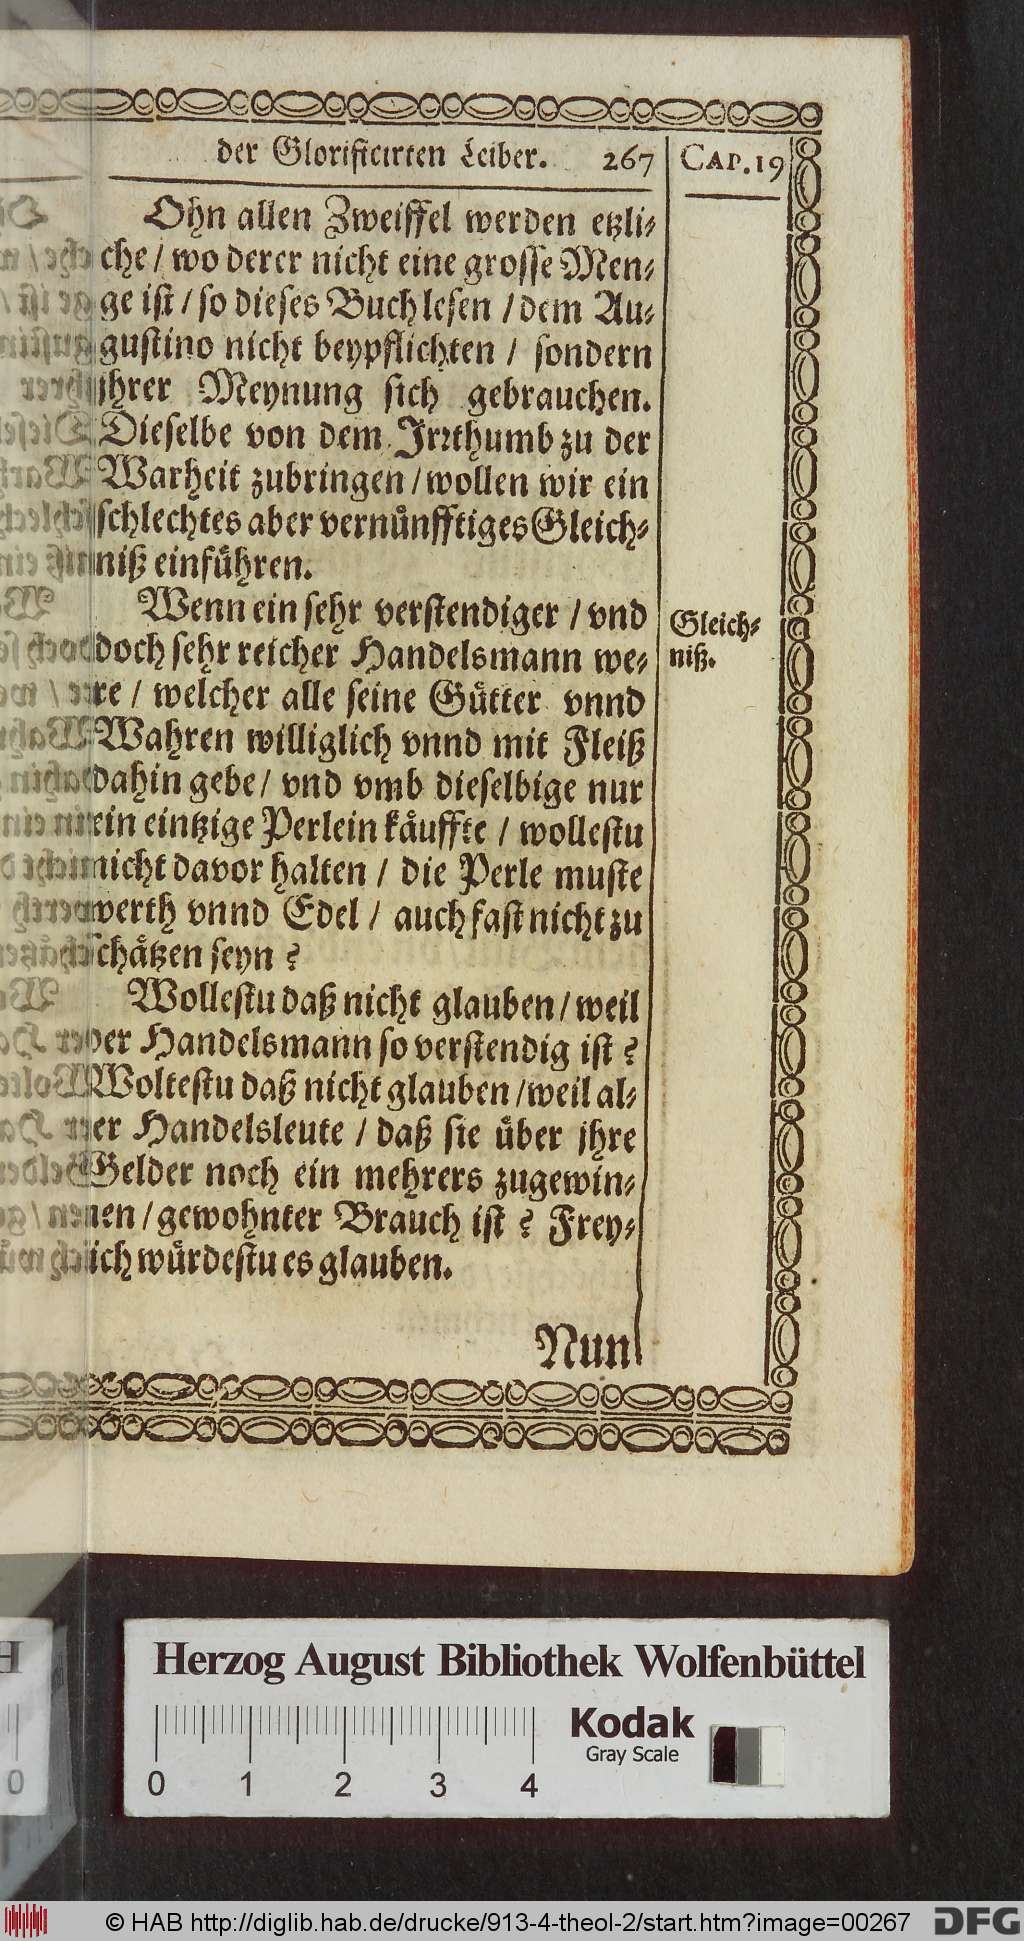 der Glorificirten Leiber. 267 CAP. 19
Ohn allen Zweiffel werden etzli-
che / wo derer nicht eine grosse Men-
ge ist / so dieses Buch lesen / dem Au-
gustino nicht beypflichten / sondern
jhrer Meynung sich gebrauchen.
Dieselbe von dem Irrthumb zu der
Warheit zubringen / wollen wir ein
schlechtes aber vernůnfftiges Gleich-
niß einfůhren.
Wenn ein sehr verstendiger / vnd
doch sehr reicher Handelsmann we-
re / welcher alle seine Gůtter vnnd
Wahren williglich vnnd mit Fleiß
dahin gebe / vnd vmb dieselbige nur
ein eintzige Perlein kåuffte / wollestu
nicht davor halten / die Perle muste
werth vnnd Edel / auch fast nicht zu
schåtzen seyn?
Gleich-
niß.
Wollestu daß nicht glauben / weil
der Handelsmann so verstendig ist?
Woltestu daß nicht glauben / weil al-
ler Handelsleute / daß sie über jhre
Gelder noch ein mehrers zugewin-
nen / gewohnter Brauch ist? Frey-
lich wůrdestu es glauben.
Nun
Herzog August Bibliothek Wolfenbüttel
Kodak
Gray Scale
0 1 2 3 4
0
© HAB http://diglib.hab.de/drucke/913-4-theol-2/start.htm?image=00267
DFG